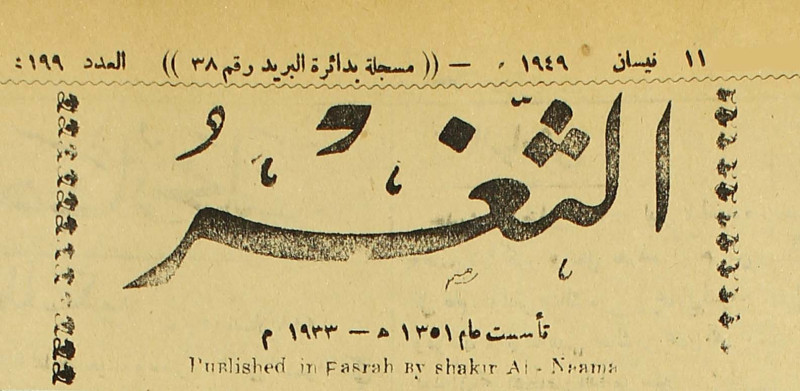 ١١ نيسان ١٩٤٩ — (( مسجلة بدائرة البريد رقم ٣٨ )) العدد ١٩٩
الثَّغْرُ
تأسست عام ١٣٥١ ه — ١٩٣٣ م
Published in Basrah By shakir Al - Naama